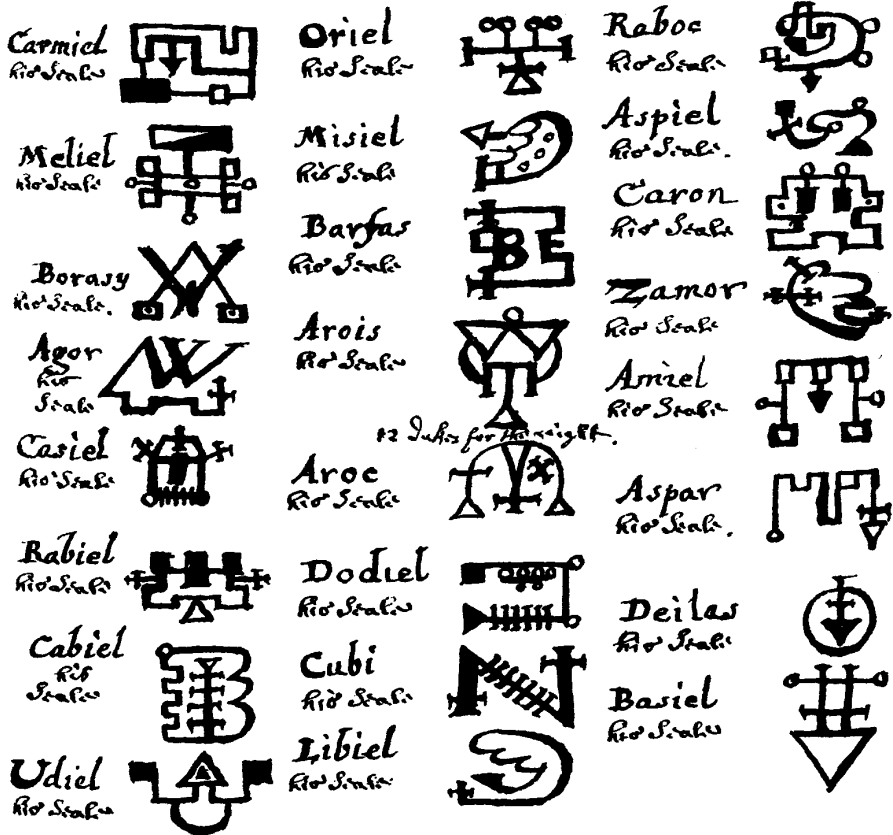 Carmiel
his Seale
Meliel
his Seale
Borasy
his Seale.
Agor
his
Seale
Casiel
his Seale
Rabiel
his Seale
Cabiel
his
Seale
Udiel
his Seale
Oriel
his Seale
Misiel
his Seale
Barfas
his Seale
BE
Arois
his Seale
12 Dukes for the night.
Aroc
his Seale
Dodiel
his Seale
Cubi
his Seale
Libiel
his Seale
Raboc
his Seale
Aspiel
his Seale.
Caron
his Seale
Zamor
his Seale
Amiel
his Seale
Aspar
his Seale.
Deilas
his Seale
Basiel
his Seale